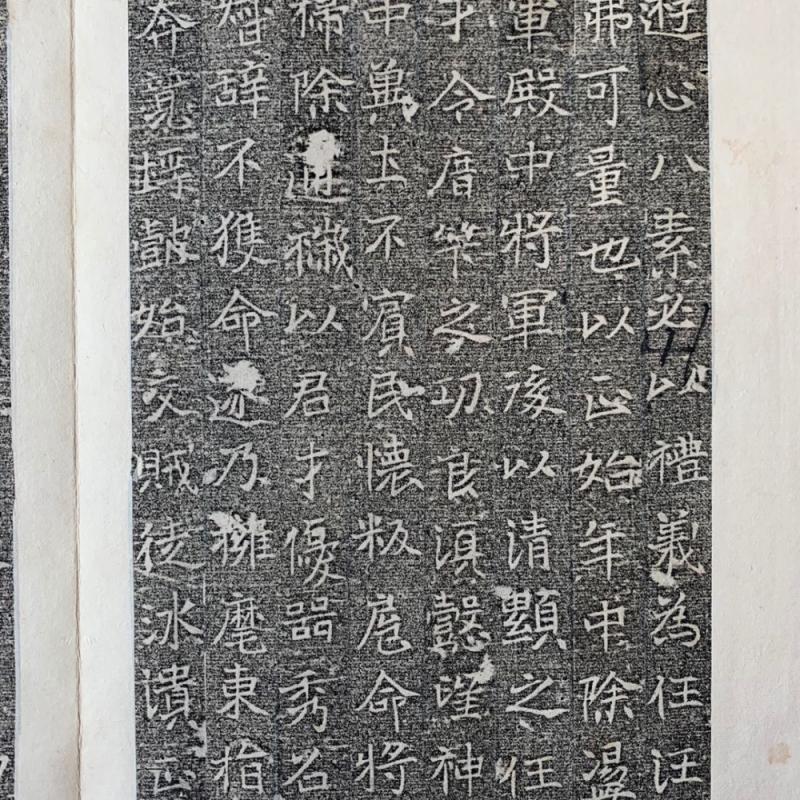 遊心八素必以禮義為任汪
弗可量也以正始年中除盪
軍殿中將軍後以清顯之任
才令之功良須懿望神
中冀土不賓民懷叛扈命將
掃除逋穢以君才優器秀名
辭不獲命遂乃擁麾東指
奔鼓始交賊徒冰潰